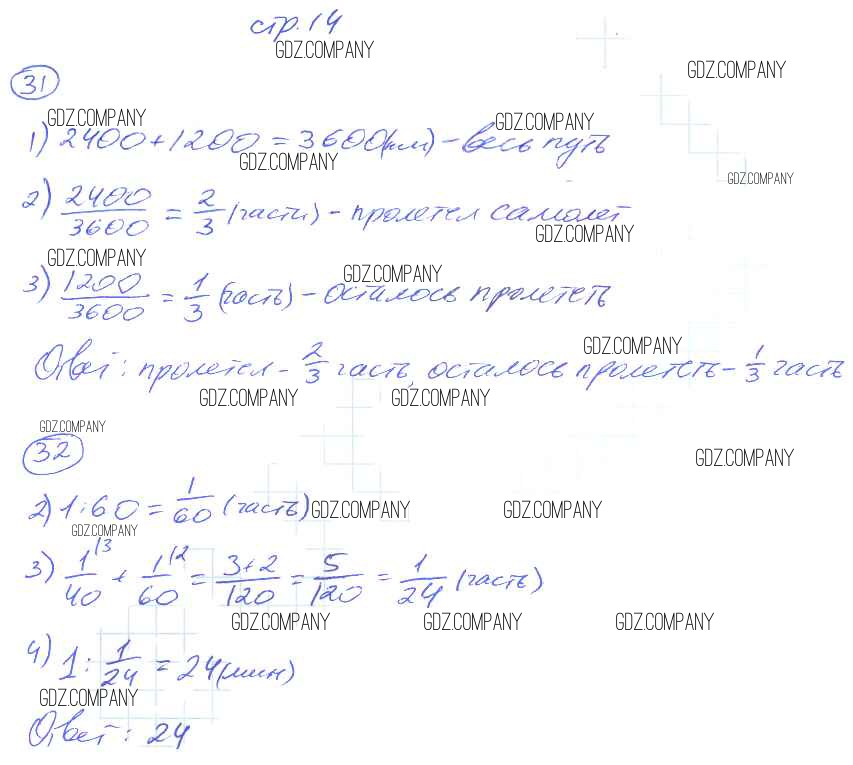 стр. 14
GDZ.COMPANY
GDZ.COMPANY
31
GDZ.COMPANY
GDZ.COMPANY
1) 2400+1200 = 3600(км) – весь путь
GDZ.COMPANY
GDZ.COMPANY
2) 2400/3600 = 2/3 (части) – пролетел самолет
GDZ.COMPANY
GDZ.COMPANY
GDZ.COMPANY
3) 1200/3600 = 1/3 (часть) – осталось пролететь
GDZ.COMPANY
Ответ: пролетел – 2/3 часть, осталось пролететь – 1/3 часть
GDZ.COMPANY GDZ.COMPANY
GDZ.COMPANY
32
GDZ.COMPANY
2) 1:60 = 1/60 (часть) GDZ.COMPANY GDZ.COMPANY
GDZ.COMPANY
3) 1/40 \3 + 1/60 \2 = 3+2/120 = 5/120 = 1/24 (часть)
GDZ.COMPANY GDZ.COMPANY GDZ.COMPANY
4) 1: 1/24 = 24(мин)
GDZ.COMPANY
Ответ: 24